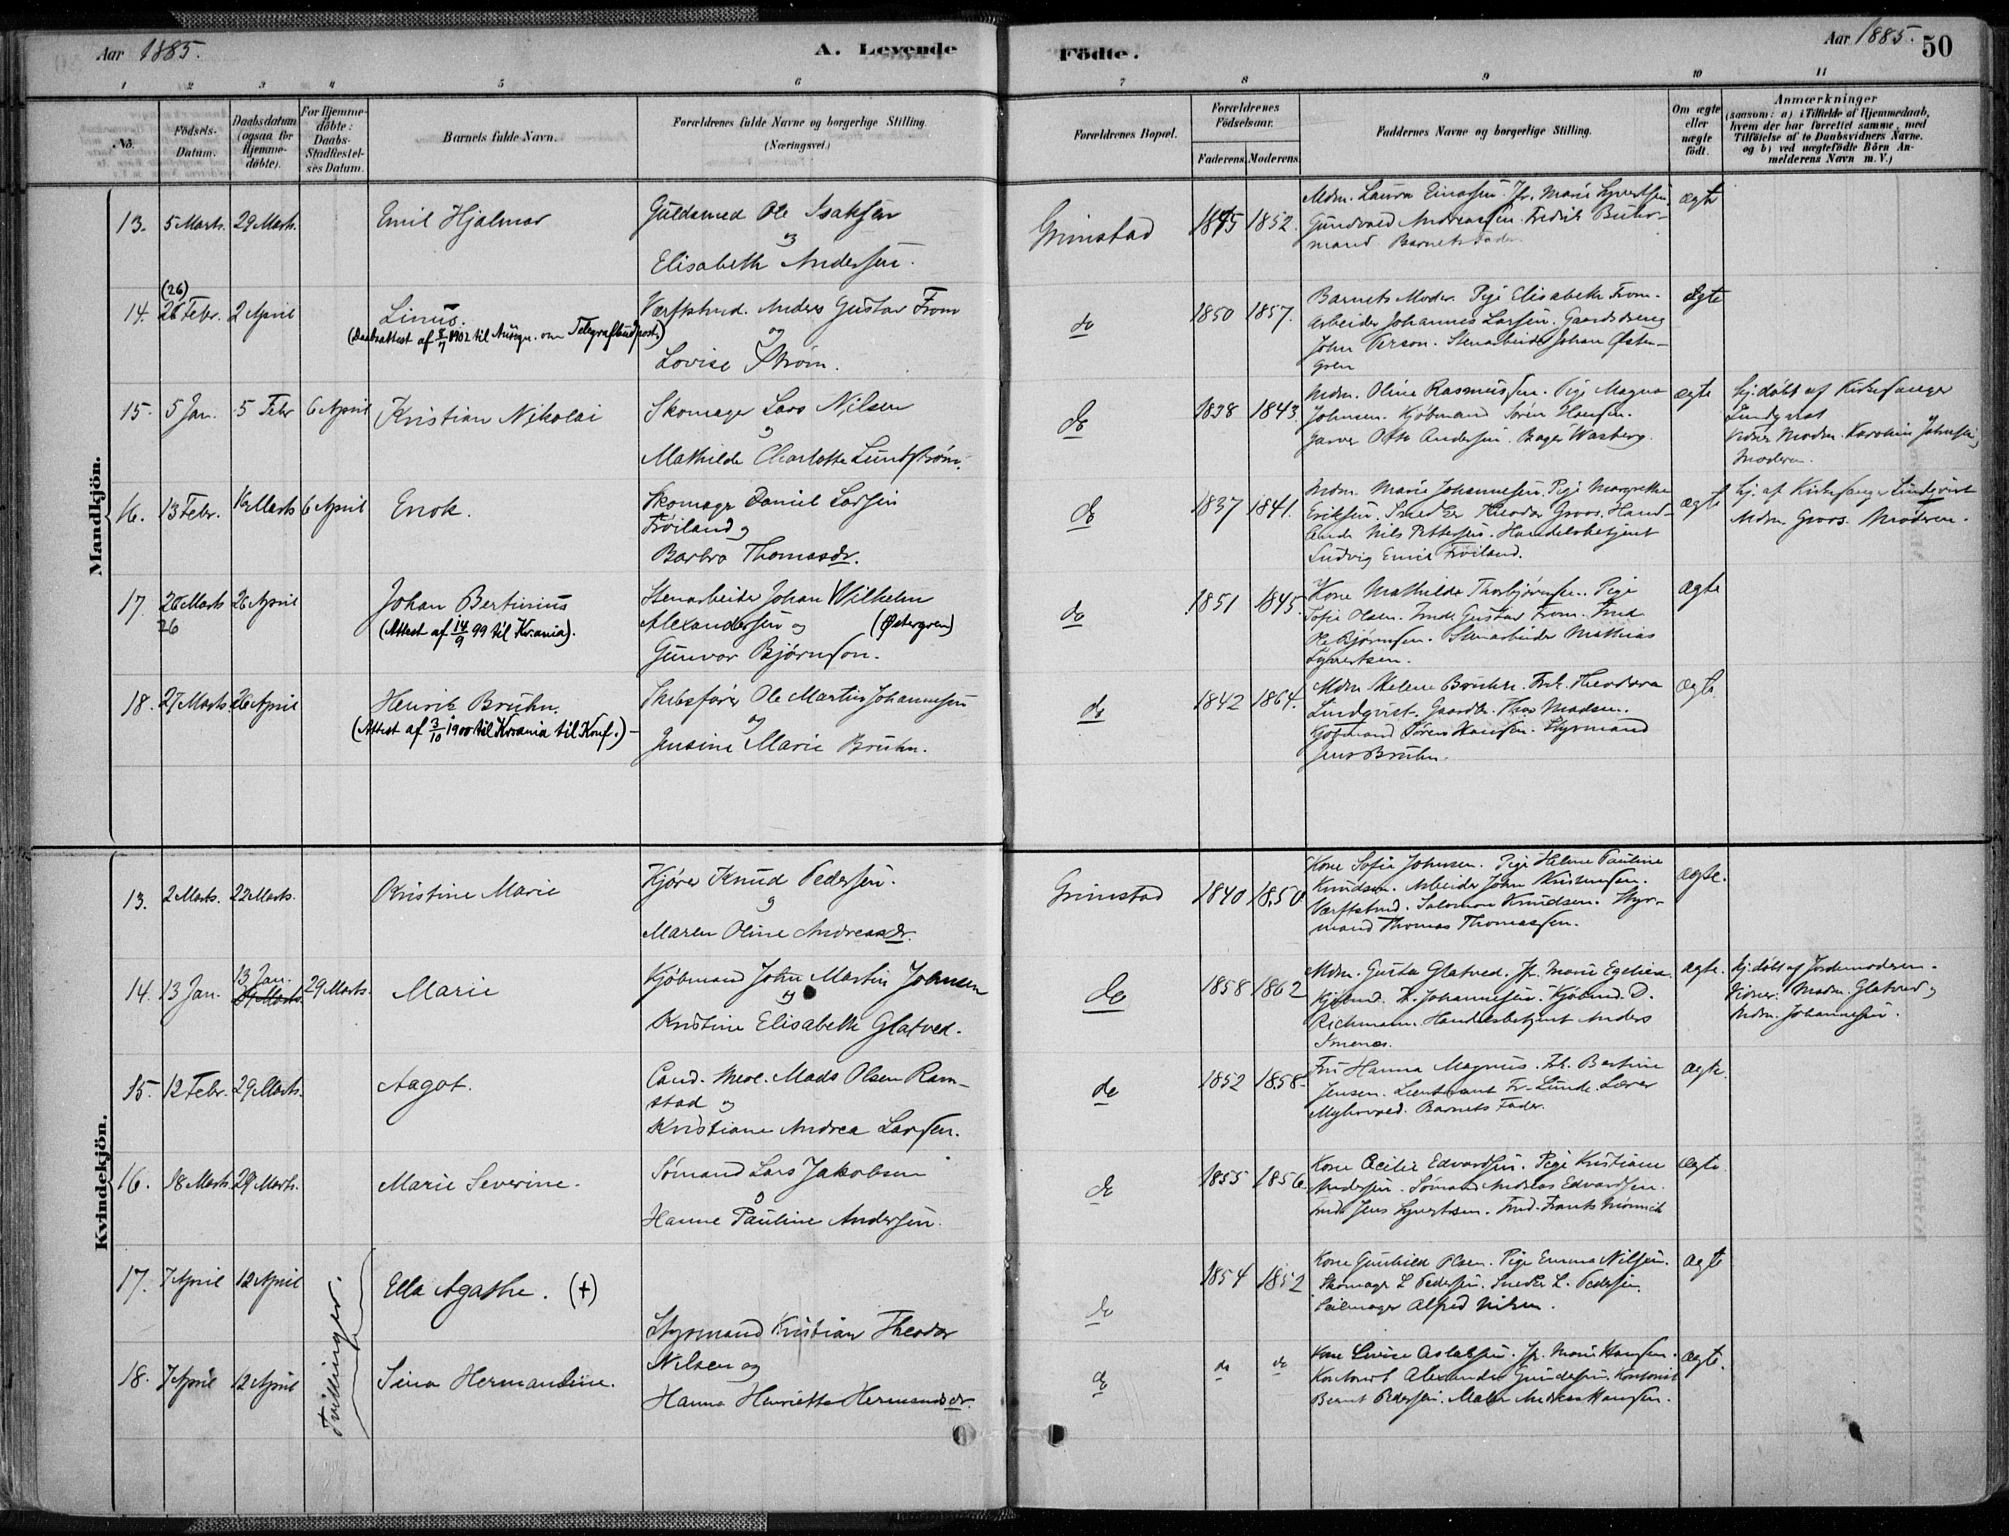 Aar 1885.
A. Levende
Födte.
Aar 1885.
50
1 2 3 4 5 6 7 8 9 10 11
No.
Födsels-
Datum.
Daabsdatum
(ogsaa for
Hjemme-
döbte).
For Hjemme-
döbte:
Daabs-
Stadfæstel-
ses Datum.
Barnets fulde Navn.
Forældrenes fulde Navne og borgerlige Stilling.
(Næringsvei.)
Forældrenes Bopæl.
Forældrenes
Födselsaar.
Faderens.
Moderens.
Faddernes Navne og borgerlige Stilling.
Om ægte
eller
uægte
födt.
Anmærkninger
(saasom: a) i Tilfælde af Hjemmedaab,
hvem der har forrettet samme, med
Tilföielse af to Daabsvidners Navne.
og b) ved uægtefödte Börn An-
melderens Navn m. V.)
Mandkjön.
13. 5 Marts. 29 Marts. Emil Hjalmar
Guldsmed Ole Isaksen
og
Elisabeth Andersen.
Grimstad 1845 1852.
Mdm. Laura Einersen. Jfr. Marie Syvertsen
Gundvald Andreassen. Fredrik
mand Barnets Fader
ægte
14. (26) Febr. 2 April
Linus.
(Daabsattest af 8/7 1902 til om Telegrafbudpost)
Værftstmd. Anders Gustav From
og
Lovise Strøm.
do 1850 1857.
Barnets Moder. Pige Elisabeth From.
Arbeider Johannes Larsen. Gaardsdreng
John Person. Stenarbeider Johan Østen-
gren
Ægte
15. 5 Jan. 5 Febr 6 April Kristian Nikolai
Skomager Lars Nilsen
og
Mathilde Charlotte Lundstrøm.
do 1838 1843.
Mdm. Oline Rasmussen. Pige Magna
Johnsen. Kjøbmand Søren Hansen.
Garver Otto Andersen. Bager Wasberg.
ægte
hj.døbt af Kirkesanger
Lundqvist
Vidner Madm. Karoline Johnsen og
Moderen.
16. 13 Febr. Marts 6 April Enok.
Skomagr Daniel Larsen
Frøiland og
Barbro Thomasdr.
do 1837 1841.
Mdm. Marie Johannesen. Pige Margrethe
Eriksen. Smed Theodor Groos. Hand-
Nils Pettersen. Handelsbetjent
Ludvig Emil Frøiland.
ægte
hj. af Kirkesanger Lindqvist
Mdm. Groos. Moderen.
17. 26 Marts 26 April
26
Johan Bertinius
(Attest af 14/9 99 til Kr.ania).
Stenarbeider Johan Wilhelm
Alexandersen og (Østergren)
Gunvor Bjørnson.
do 1851 1845.
Kone Mathilde Thorbjørnsen. Pige
Sofie Olsen. Tmd. Gustav From. Tmd
Ole Bjørnsen. Stenarbeider Mathias
Syvertsen.
Ægte
18. 27 Marts. 26 April
Henrik Bruhn.
(Attest af 3/10 1900 til Kr.ania til Konf.)
Skibsfører Ole Martin Johannesen
og
Jensine Marie Bruhn.
do 1842 1864.
Mdm Helene Bruhn. Frk. Theodora
Lindqvist. Gaardbr. Madsen.
Kjøbmand Søren Hansen. Styrmand
Jens Bruhn.
Ægte.
Kvindekjön.
13. 2 Marts. 22 Marts. Kristine Marie
Kjører Knud Pedersen.
og
Maren Oline Andreasdr.
Grimstad 1840 1850
Kone Sofie Johnsen. Pige Helene Pauline
Knudsen. Arbeider John Kristensen.
Værftstmd. Salomon Knudsen. Styr-
mand Thomas Thomassen.
Ægte.
14. 13 Jan. 13 Jan. 29 Marts. Marie
Kjøbmand John Martin Johnsen
og
Kristine Elisabeth Glatved.
do 1858 1862
Mdm. Gusta Glatved. Jfr. Marie Egelien
Kjøbmd. H. Johannesen. Kjøbmd. D.
Richmann. Handelsbetjent Anders
ægte.
hj.døbt af Jordemoderen.
Vidner: Madm. Glatved og
Mdm. Johannesen.
15. 12 Febr. 29 Marts. Aagot.
Cand. med. Mads Olsen Ram-
stad og
Kristiane Andrea Larsen.
do 1852 1858.
Fru Hanna Magnus. Frk. Bertine
Jensen. Lieutnant Fr. Lunde. Lærer
Myhrvold. Barnets Fader.
ægte.
16. 18 Marts. 29 Marts. Marie Severine.
Sømand Lars Jakobsen
og
Hanne Pauline Andersen.
do 1855 1856.
Kone Cecilie Edvardsen. Pige Kristiane
Andersen. Sømand Andreas Edvardsen.
Tmd. Jens Syvertsen. Tmd. Frants Mönnich
ægte
17. 7 April 12 April
Tvillinger.
Ella Agathe. (+)
Styrmand Kristian Theodor
Nilsen og
Hanna Henriette Hermansdr.
do 1854 1852
Kone Gunhild Olsen. Pige Emma Nilsen.
Skomagr L. Pedersen. Snedker L. Pedersen.
Seilmager Alfred Nilsen.
ægte
18. 7 April 12 April Sina Hermandine.
do do do
Kone Lovise Aslaksen. Jfr. Marie Hansen.
Kontorist Alexander Gundersen. Kontorist
Bernt Pedersen. Maler Andreas Hansen.
ægte.